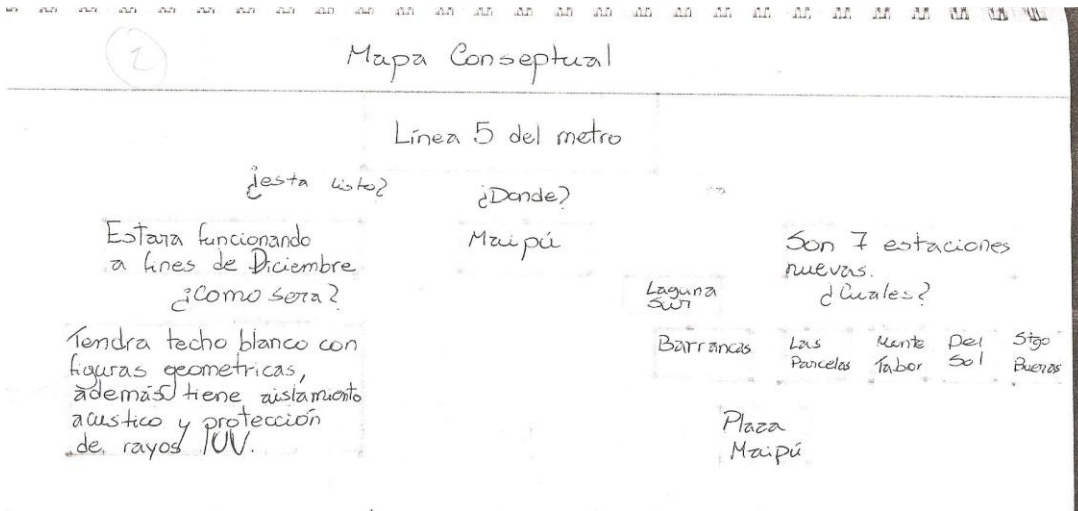 2
Mapa Conseptual
Línea 5 del metro
¿esta listo?
¿Donde?
Estara funcionando
a fines de Diciembre
Maipú
Son 7 estaciones
nuevas.
¿Como sera?
Laguna
Sur
¿Cuales?
Tendra techo blanco con
figuras geometricas,
además tiene aislamiento
acustico y protección
de rayos UV.
Barrancas
Las
Parcelas
Monte
Tabor
Del
Sol
Stgo
Bueras
Plaza
Maipú